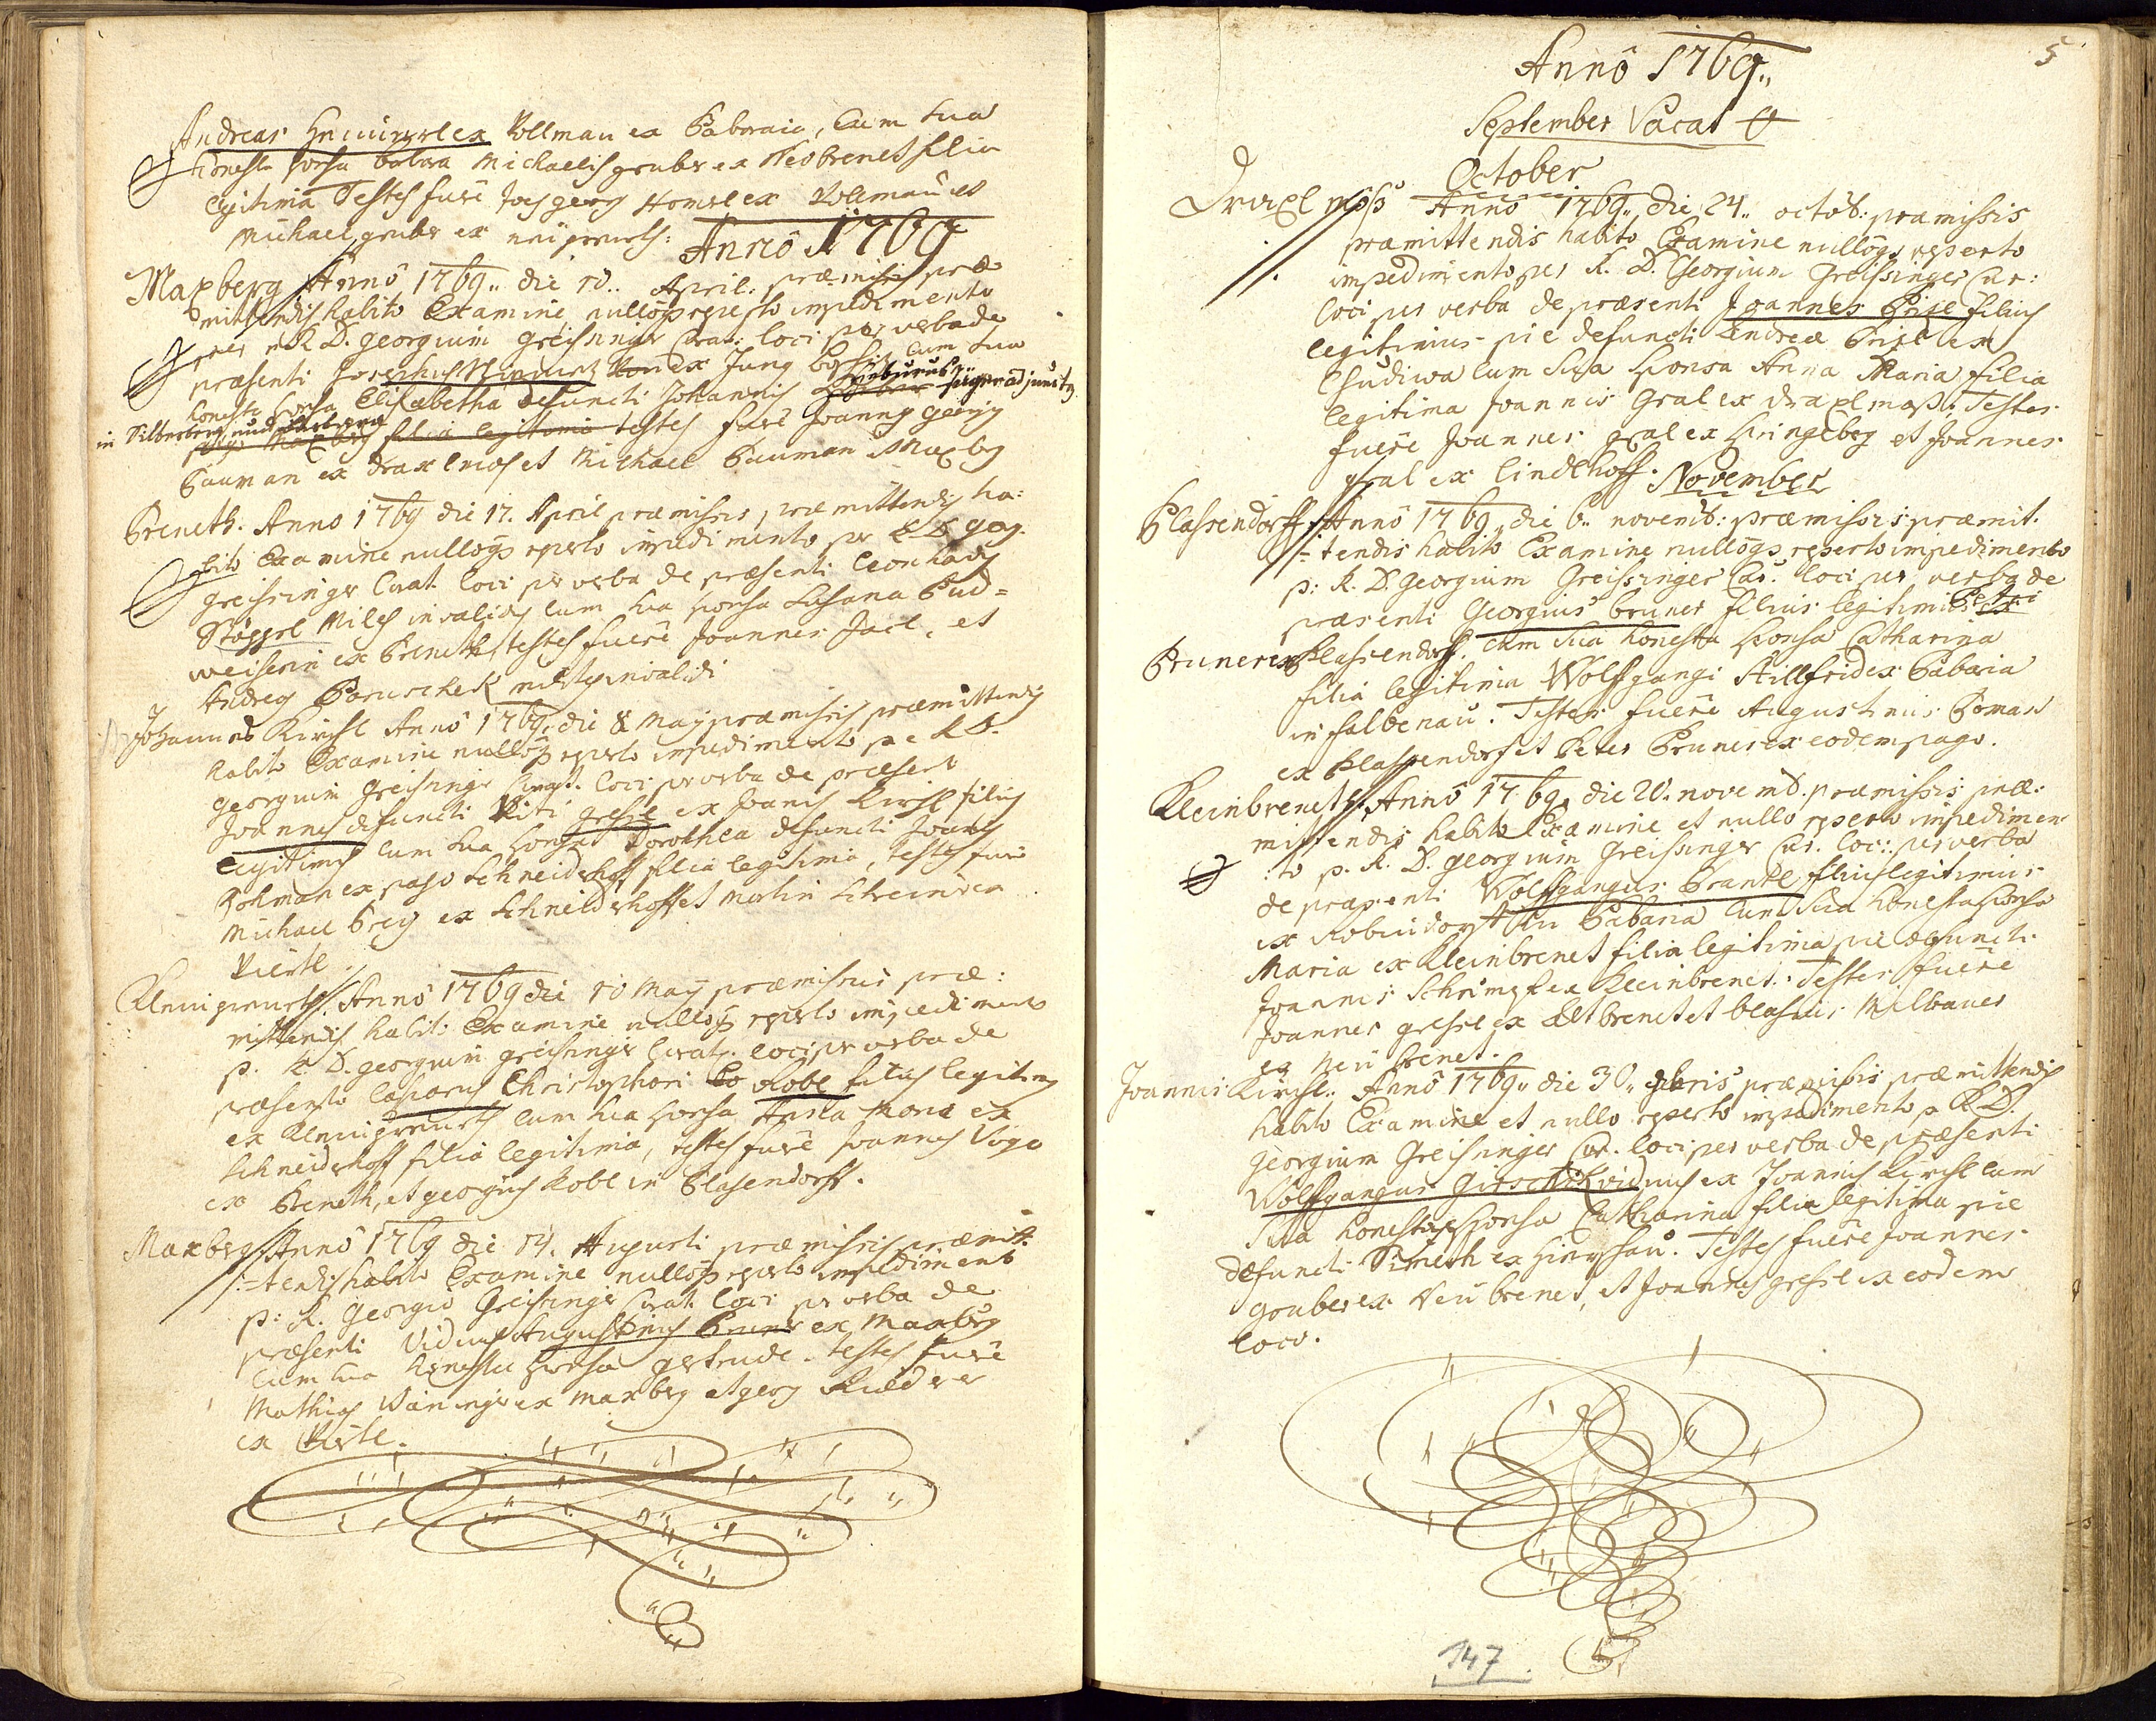 Andreas ex Vollmau ex Babaria, Cum sua
honesta sponsa Barbara Michaelis gruber ex Neobrenet filia
legitima Testes fuere Joes georg ex Vollmau et
Michael gruber ex neu
Anno 1769
Maxberg Anno 1769.. die 10.. April: præmissis præ
mittendis habito Examine nulloqs reperto impedimento
per R D. georgium Greissinger Curat: loci per verba de
præsenti Josephus ex Jung cum sua
honesta sponsa Elisabetha defuncti Johannis
in Silberberg
filia legitima testes fuere Joannes georg
Bauman ex draxlmos et Michael Bauman Maxberg
Breneth. Anno 1769 die 17. April præmissis, præmittendis ha:
bito Examine nulloqs reperto impedimento per R D georg.
greissinger Curat. loci per verba de præsenti leonhard
Stögerl Miles invalidus cum sua sponsa Susana Bud=
weiserin ex Breneth testes fuere Joannes Jacl, et
Andreas Boruschek milites invalidi
Johannes Kirchl Anno 1769. die 8 May præmissis præmittendis
habito Examine nulloqs reperto impedimento per R D.
georgium Greissinger Curat. loci per verba de præsenti
Joannes defuncti Viti gressl ex Joanis Kirchl filius
legitimus cum sua sponsa Dorothea defuncti Joanis
ex pago Schneiderhoff filia legitima, testes fuere
Michael ex Schneiderhoff et Martin Schreiner
Viertl.
Anno 1769 die 10 May præmissis præ:
mittendis habito Examine nulloqs reperto impedimento
p. R D. georgium greissinger Curat. loci per verba de
præsenti Casparus Christophori Kobl filius legitimus
ex cum sua sponsa Anna Maria ex
Schneiderhoff filia legitima, testes fuere Joannes Vogl
ex Breneth, et georgius Kobl in Plasendorff.
Maxberg Anno 1769 die 14. Augusti præmissis præmit:
=tendis habito Examine nulloqs reperto impedimento
p: R. Georgio Greissinger Curat. loci per verba de
præsenti Viduus Augustinus Bruner ex Maxberg
Cum sua honesta sponsa gertrude. testes fuere
Mathias Waninger ex Maxberg et georg
ex Viertl.
5
Anno 1769..
September Vacat
October
Draxlmoss Anno 1769.. die 24.. octob: præmissis
præmittendis habito Examine nulloqs reperto
impedimento per R. D. Georgium Greissinger Cur:
loci per verba de præsenti Joannes Prisl filius
legitimus pie defuncti Andreæ Prisl ex
Chudiwa cum sua sponsa Anna Maria filia
legitima Joannis Gral ex draxlmoss: Testes
fuere Joannes gral ex Springlberg et Joannes
gral ex lindlhoff. November
Plassendorff Anno 1769. die 6.. novemb: præmissis præmit.
=tendis habito Examine nulloqs reperto impedimento
p: R. D. Georgium Greissinger Cur: loci per verba de
præsenti Georgius bruner filius legitimus Petri
Pruner ex Plassendorff. cum sua honesta sponsa Catharina
filia legitima Wolffgangi Stillfrid ex Babaria
in falbenau. Testes fuere Augustinus Boman
ex Plassendorf et Peter Bruner ex eodem pago.
Kleinbreneth Anno 1769. die 20. novemb. præmissis præ:
mittendis habito Examine et nullo reperto impedimen
to p. R. D. georgium Greissinger Cur. loci: per verba
de præsenti Wolffgangus Brantl filius legitimus
ex in Babaria cum sua honesta sponsa
Maria ex Kleinbrenet filia legitima pie defuncti
Joannis Schrimpf ex Kleinbrenet. Testes fuere
Joannes gressl ex Altbrenet et blasius Milbauer
ex Neu brenet.
Joannes Kirchl.. Anno 1769.. die 30.. præmissis præmittendis
habito Examine et nullo reperto impedimento p R D.
Georgium Greissinger Cur. loci per verba de præsenti
Wolffgangus viduus ex Joannis Kirchl cum
sua honesta sponsa Catharina filia legitima pie
defuncti Simeth ex Hinrshau. Testes fuere Joannes
gruber ex Neu brenet, et Joannes gressl ex eodem
loco.
147